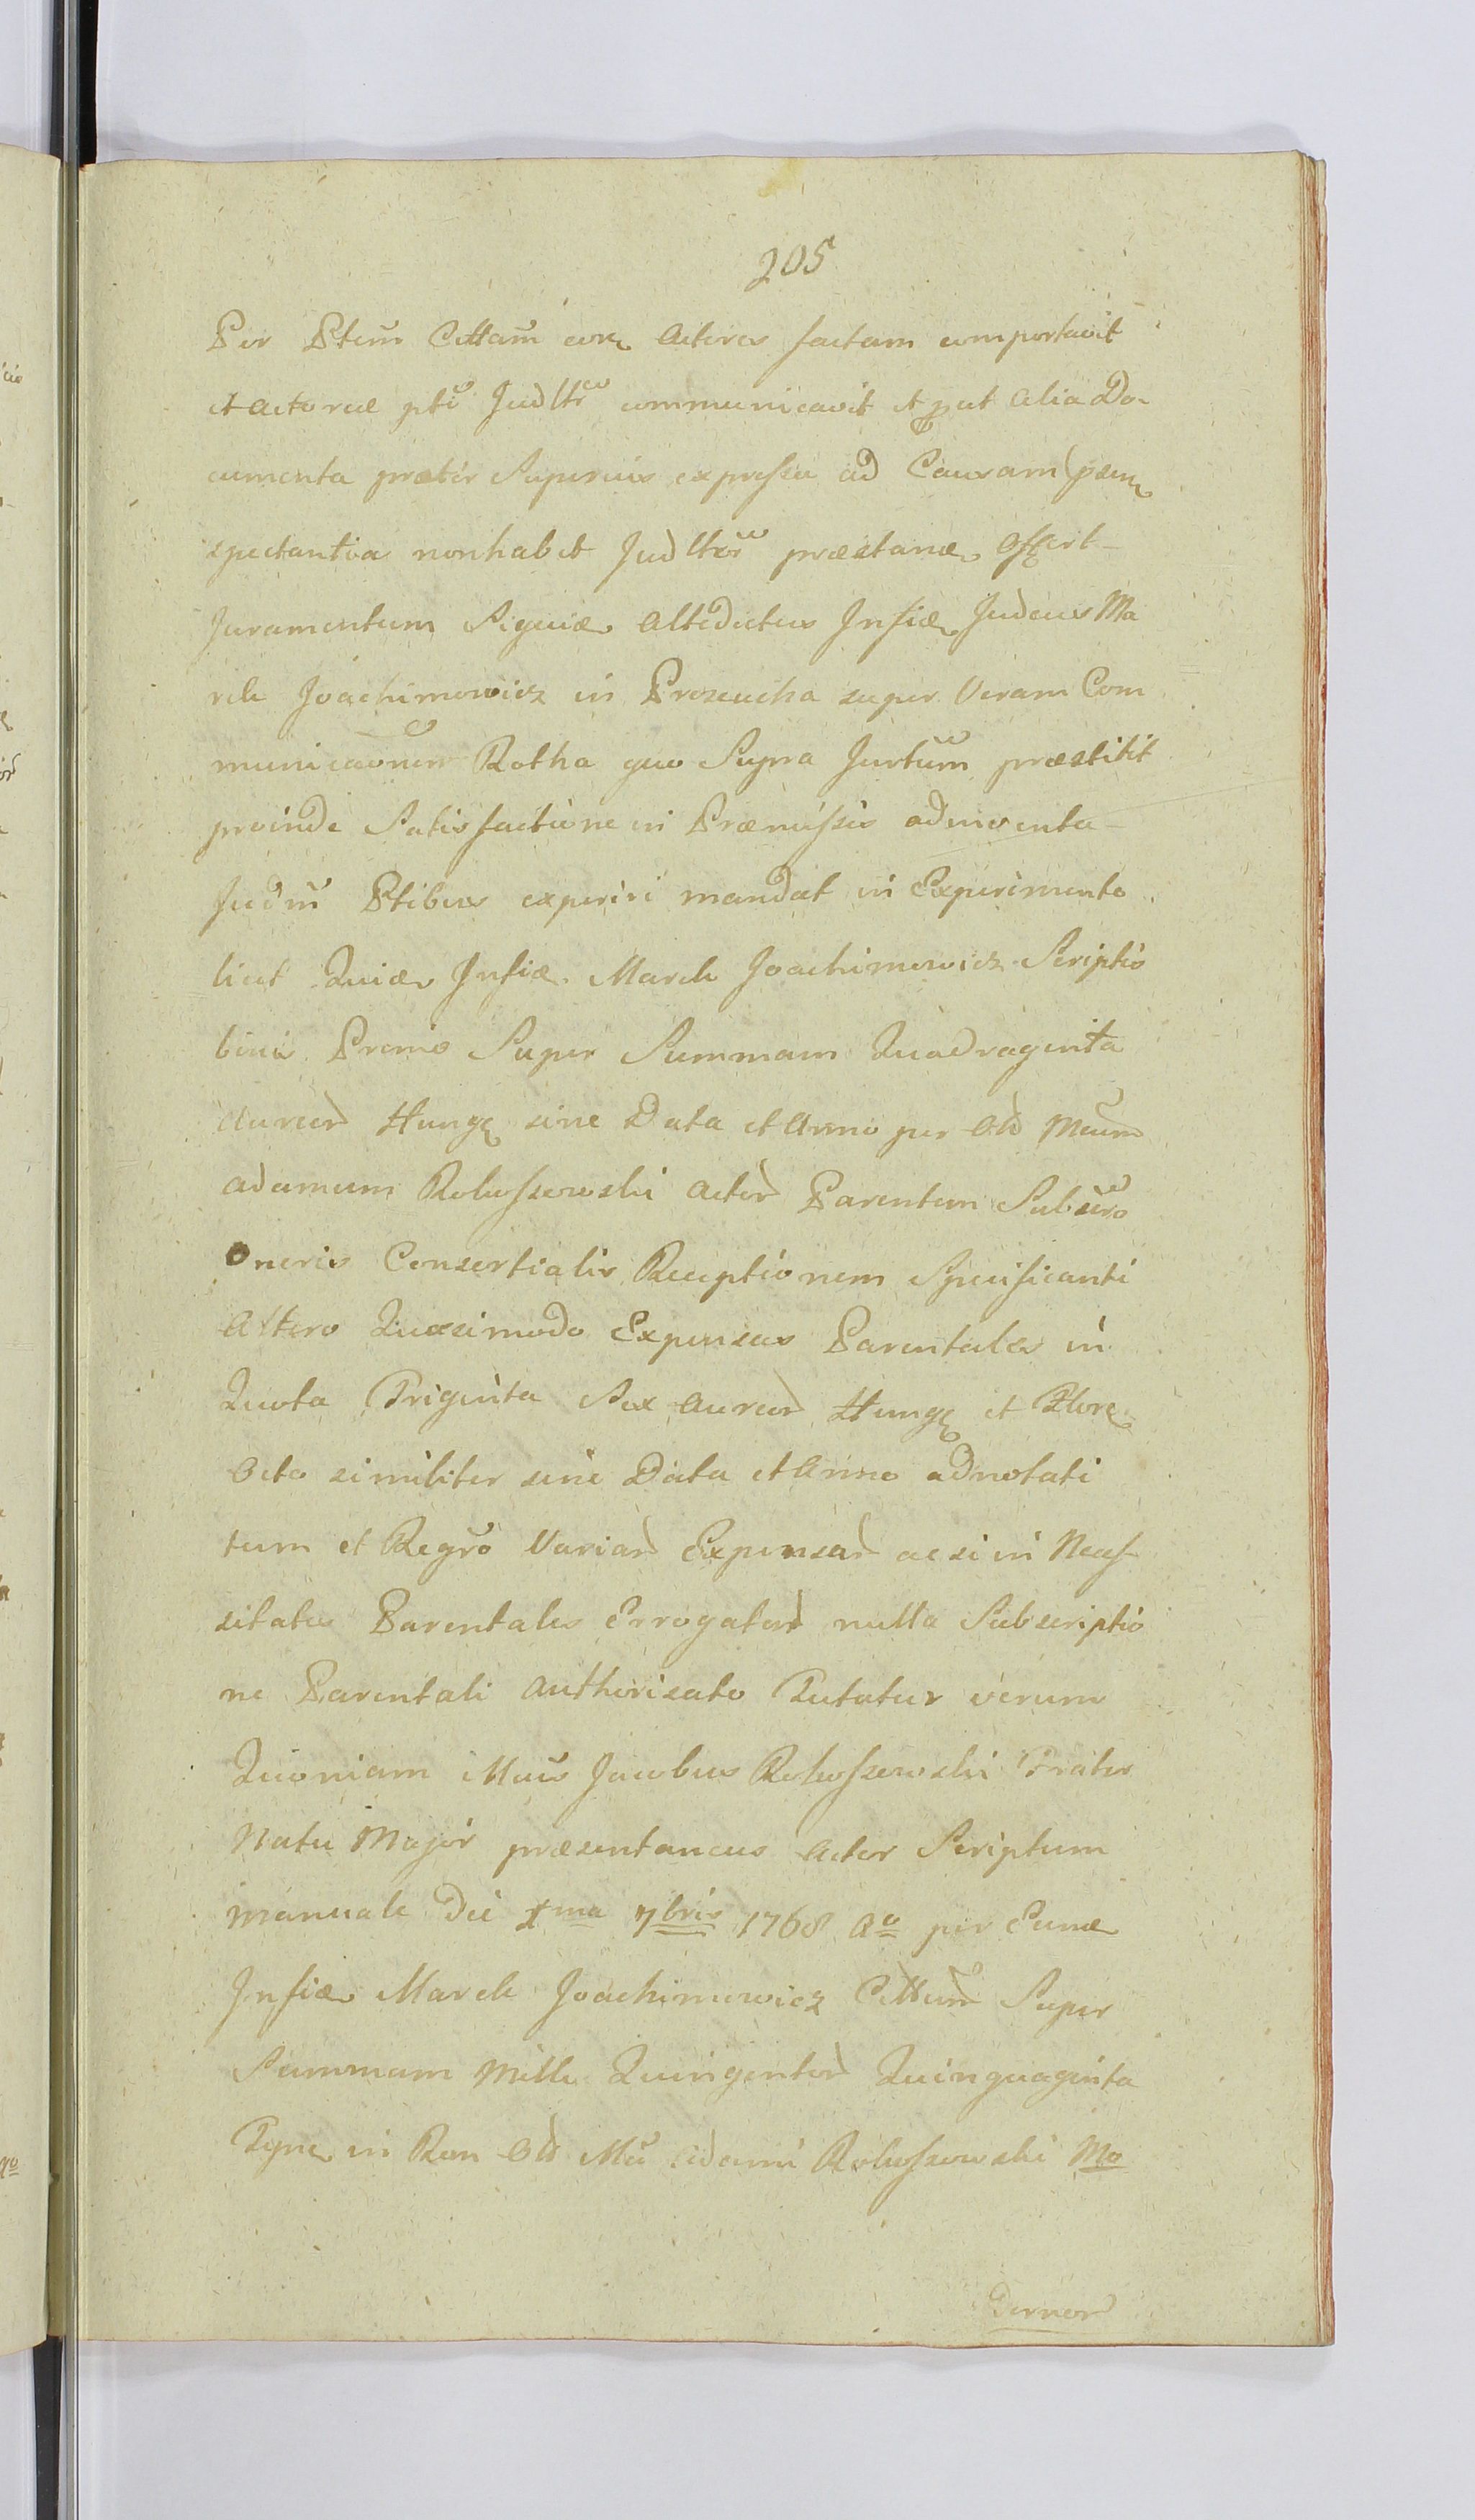 205
Per Ptem Cittam eorum Actores factam comportavit
et Actoreæ pti Judltr communicavit et put alia Do-
cumenta præter Superius expressa ad Causam psem
spectantia non habet Judltr præstand Offert
Juramentum Siquid Altedictus Infid Judæus Ma
rek Joachimowicz in Proseucha super Veram Com
municaonem Rotha quo Supra Jurtum præstitit
proinde Satisfactione in Præmissis adinventa
Judm Ptibus experiri mandat in Experimento
licet Quid Infid Marek Joachimowicz Scriptis
binis Primo Super Summam Quadraginta
Aureor Hung sine Data et Anno per Olb Mcum
Adamum Rokossowski Actor Parentem Suburo
Oneris Consertialis Receptionem Specificanti
Altero Quasimodo Expensas Parentales in
Quota Triginta Sex Aureor Hung et Flore
Octo similiter sine Data et Anno adnotati
tum et Regro Variar Expensar ac si in Neces
sitates Parentales Errogatar nulla Subscriptio
ne Parentali Authorisato Tutatur verum
Quoniam Mcus Jacobus Rokossowski Frater
Natu Major præsentaneus Actor Scriptum
manuale Die Xma 7bris 1768 Ao per Eund
Infid Marek Joachimowicz Cittum Super
Summam Mille Quingentor Quinquaginta
Tynf in Ren Olb Mci Adami Rokossowski Mo
dernor